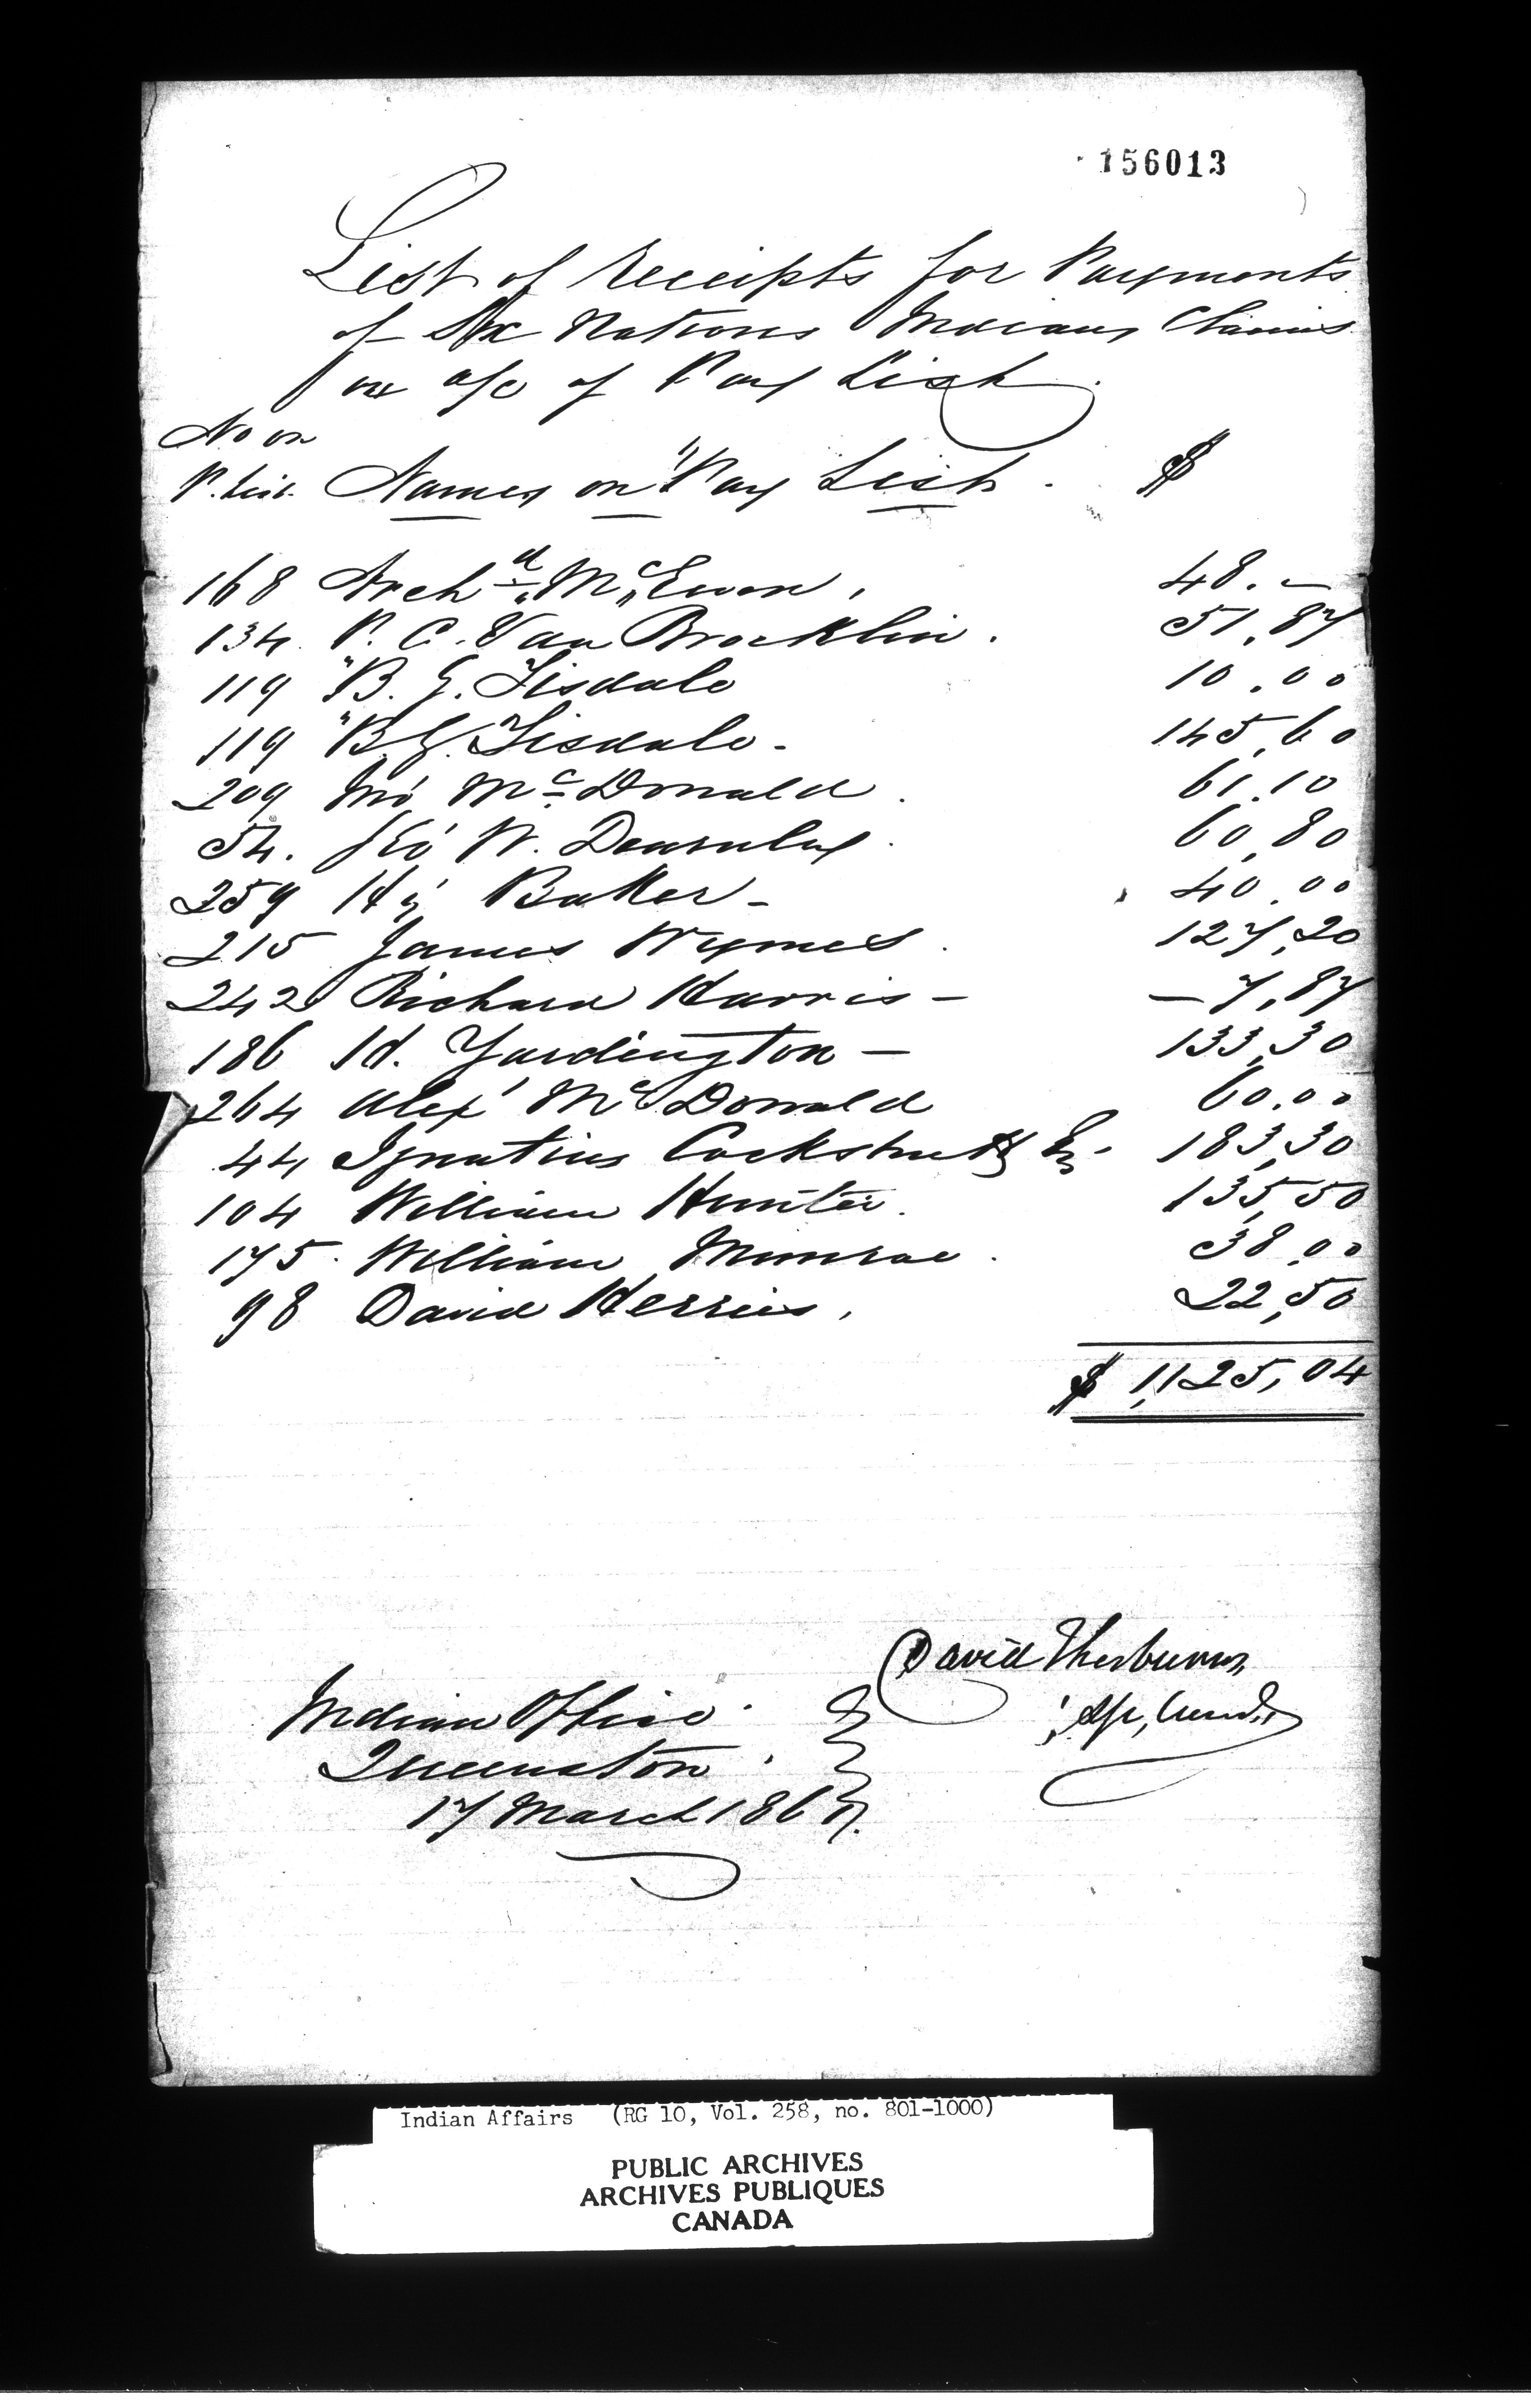 156013
List of Receipts for Payments
of Six Nations Indians Claims
on a/c of Pay List.
No on
P. List. Names on "Pay List. $
168 Archd McEwen, 48.–
134. P. C. Van Brocklin. 51,87
119 "B. G. Tisdale 10.00
119 "B. G. Tisdale - 145,60
209 Jno McDonald. 61.10
54. Geo W. Dearnley. 60,80
259 Hy Baker - 40.00
215 James Wymes. 127,20
242 Richard Harris - – 7,87
186 Hd. Yardington – 133,30
264 Alexr McDonald 60.00
44 Ignatius Cockshutt Eq. 183,30
104 William Hunter. 135,50
175. William Munroe. 38,00
98 David Herries, 22,50
$ 1,125,04
David Thorburn
Indian Office.
Queenston.
17 March 1861.
Indian Affairs (RG 10, Vol. 258, no. 801-1000)
PUBLIC ARCHIVES
ARCHIVES PUBLIQUES
CANADA